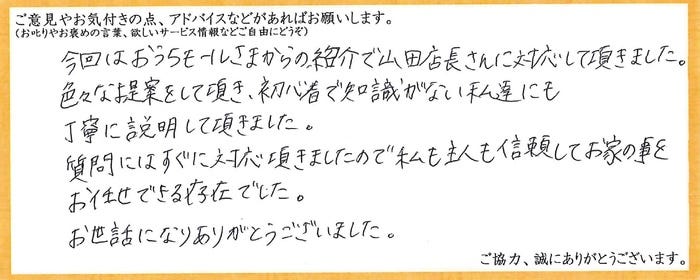 ご意見やお気付きの点、アドバイスなどがあればお願いします。
(お叱りやお褒めの言葉、欲しいサービス情報などご自由にどうぞ)
今回はおうちモールさまからの紹介で山田店長さんに対応して頂きました。
色々なお提案をして頂き、初心者で知識がない私達にも
丁寧に説明して頂きました。
質問にはすぐに対応頂きましたので私も主人も信頼してお家の事を
お任せできる存在でした。
お世話になりありがとうございました。
ご協力、誠にありがとうございます。